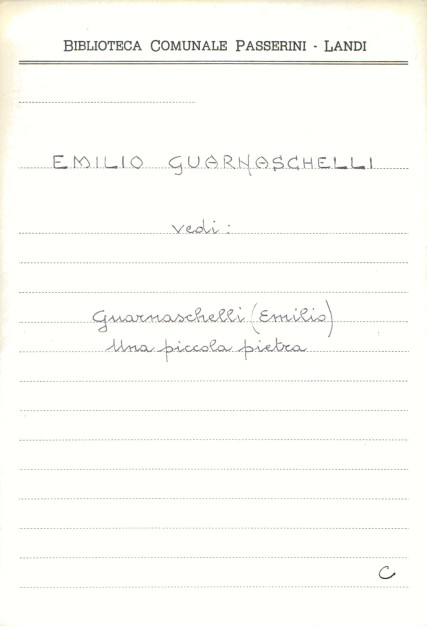 BIBLIOTECA COMUNALE PASSERINI - LANDI
EMILIO GUARNASCHELLI
vedi:
Guarnaschelli (Emilio)
Una piccola pietra
C